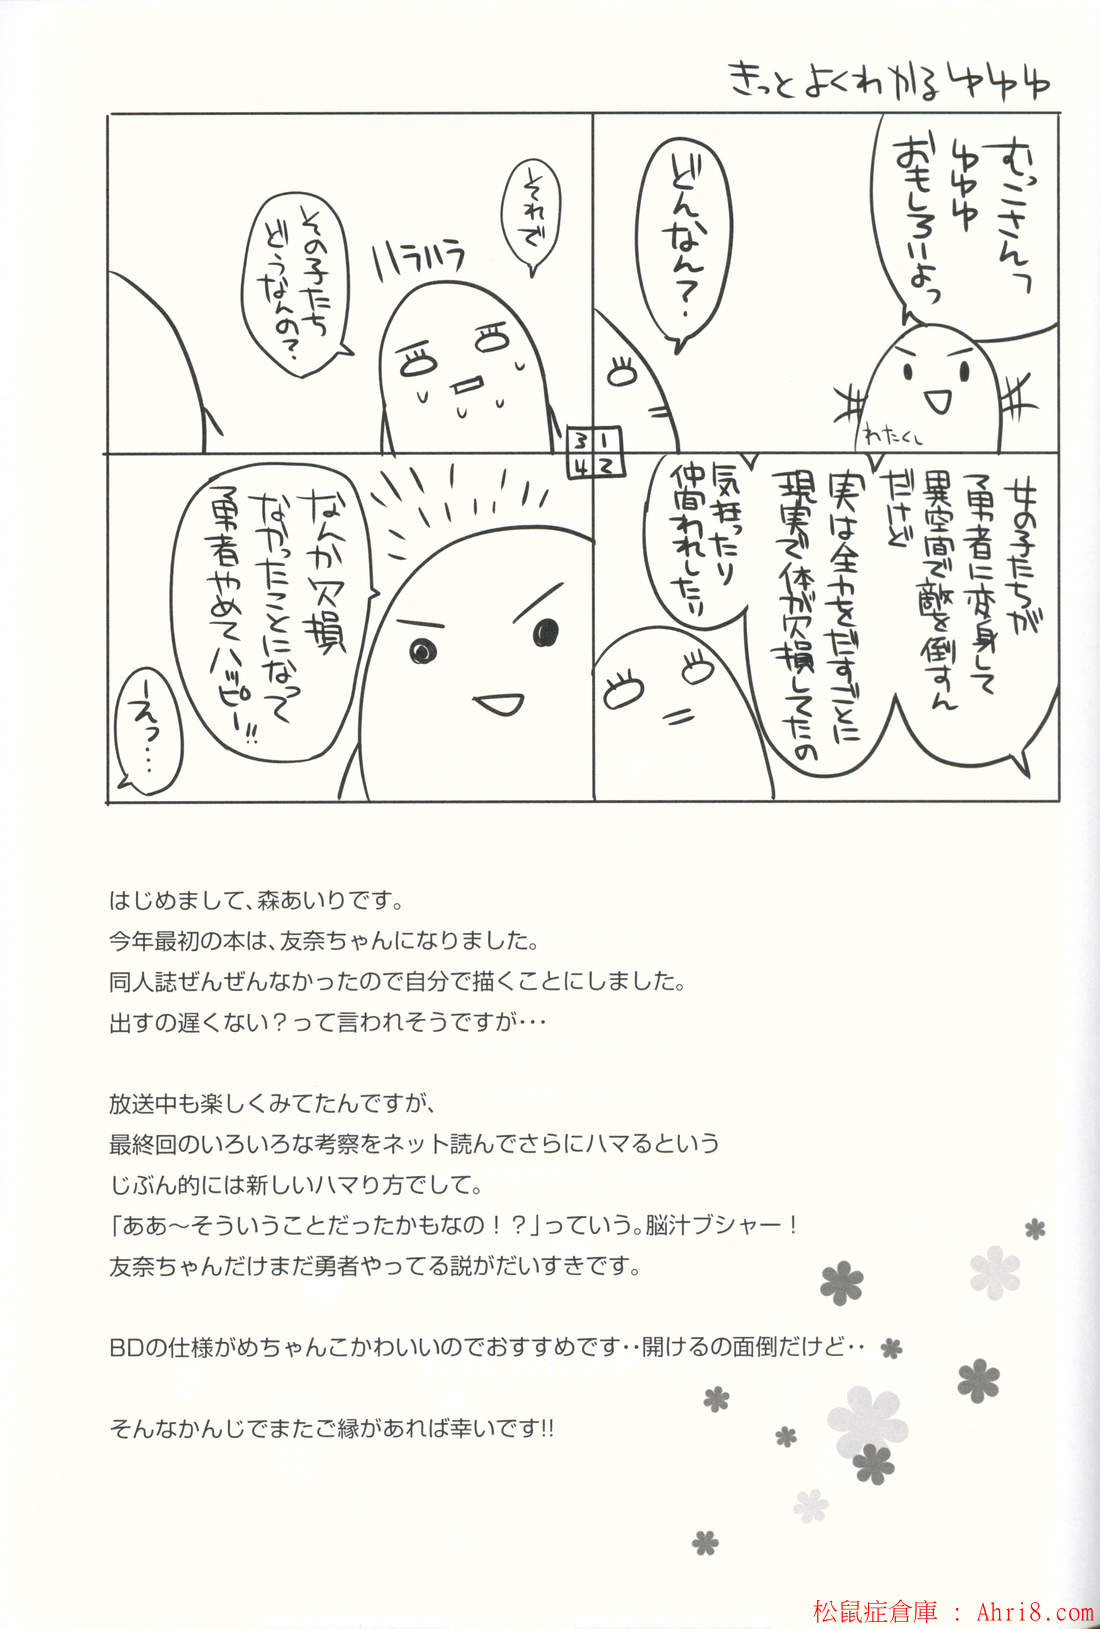 きっとよくわかるゆゆゆ
むっこさんっ
ゆゆゆ
おもしろいよっ
わたくし
どんなん？
1
2
3
4
女の子たちが
勇者に変身して
異空間で敵を倒すん
だけど
実は全力をだすごとに
現実で体が欠損してたの
気狂ったり
仲間われしたり
それで
ハラハラ
その子たち
どうなんの？
なんか欠損
なかったことになって
勇者やめてハッピー!!
ーえっ‥‥
はじめまして、森あいりです。
今年最初の本は、友奈ちゃんになりました。
同人誌ぜんぜんなかったので自分で描くことにしました。
出すの遅くない？って言われそうですが･･･
放送中も楽しくみてたんですが、
最終回のいろいろな考察をネット読んでさらにハマるという
じぶん的には新しいハマり方でして。
「ああ～そういうことだったかもなの！？」っていう。脳汁ブシャー！
友奈ちゃんだけまだ勇者やってる説がだいすきです。
BDの仕様がめちゃんこかわいいのでおすすめです‥開けるの面倒だけど‥
そんなかんじでまたご縁があれば幸いです!!
松鼠症倉庫 : Ahri8.com